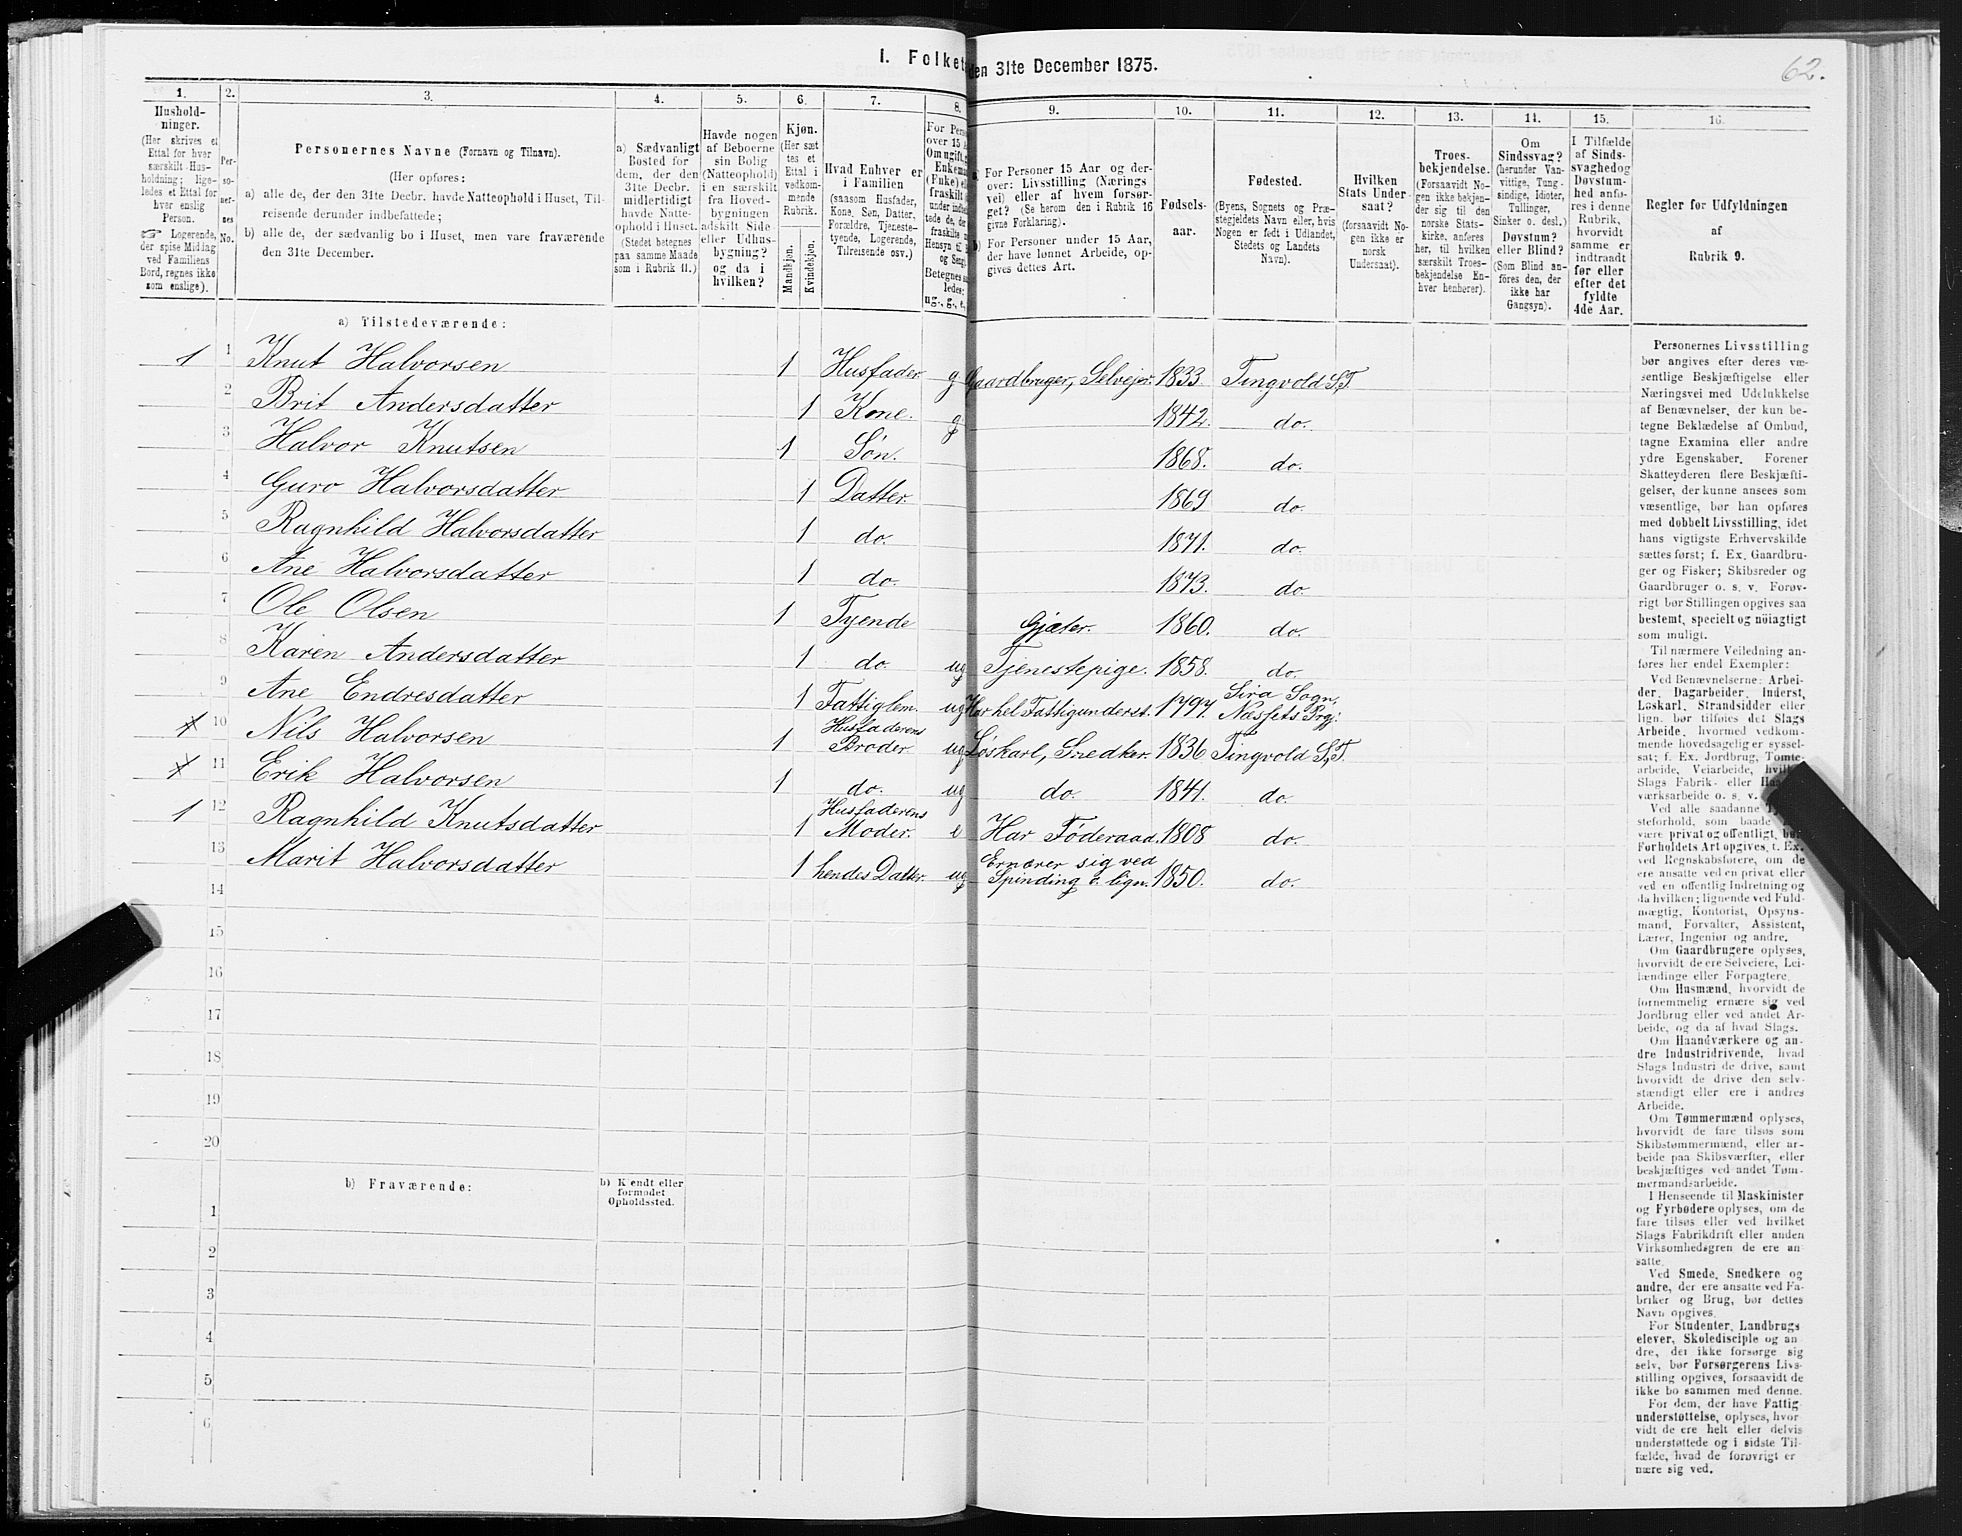 I. Folket den 31te December 1875.
62.
1. 2. 3. 4. 5. 6. 7. 8. 9. 10. 11. 12. 13. 14. 15. 16.
Hushold-
ninger.
(Her skrives et
Ettal for hver
særskilt Hus-
holdning; lige-
ledes et Ettal for
hver enslig
Person.
☞ Logerende,
der spise Middag
ved Familiens
Bord, regnes ikke
som enslige).
Per-
so-
ner-
nes
No.
Personernes Navne (Fornavn og Tilnavn).
(Her opføres:
a) alle de, der den 31te Decbr. havde Natteophold i Huset, Til-
reisende derunder indbefattede;
b) alle de, der sædvanlig bo i Huset, men vare fraværende
den 31te December.
a) Sædvanligt
Bosted for
dem, der den
31te Decbr.
midlertidigt
havde Natte-
ophold i Huset.
(Stedet betegnes
paa samme Maade
som i Rubrik 11.)
Havde nogen
af Beboerne
sin Bolig
(Natteophold)
i en særskilt
fra Hoved-
bygningen
adskilt Side
eller Udhus-
bygning?
og da i
hvilken?
Kjøn.
(Her sæt-
tes et
Ettal i
vedkom-
mende
Rubrik.
Mandkjøn.
Kvindekjøn.
Hvad Enhver er
i Familien
(saasom Husfader,
Kone, Søn, Datter,
Forældre, Tjeneste-
tyende, Logerende,
Tilreisende osv.)
For Pers
over 15 A
Om ugift, g
Enkema
(Fuke) e
fraskilt
Betegnes s
ledes:
ug., g., e.,
a) For Personer 15 Aar og der-
over: Livsstilling (Nærings
vei) eller af hvem forsør-
get? (Se herom den i Rubrik 16
givne Forklaring).
b) For Personer under 15 Aar,
der have lønnet Arbeide, op-
gives dettes Art.
Fødsels-
aar.
Fødested.
(Byens, Sognets og Præ-
stegjeldets Navn eller, hvis
Nogen er født i Udlandet,
Stedets og Landets
Navn).
Hvilken
Stats Under-
saat?
(forsaavidt No-
gen ikke er
norsk
Undersaat).
Troes-
bekjendelse.
(Forsaavidt No-
gen ikke bekjen-
der sig til den
norske Stats-
kirke, anføres
her, til hvilken
særskilt Troes-
bekjendelse En-
hver henhører).
Om
Sindssvag?
(herunder Van-
vittige, Tung-
sindige, Idioter,
Tullinger,
Sinker o. desl.)
Døvstum?
eller Blind?
(Som Blind an-
føres den, der
ikke har
Gangsyn).
I Tilfælde
af Sinds-
svaghed og
Døvstum-
hed anfø-
res i denne
Rubrik,
hvorvidt
samme er
indtraadt
før eller
efter det
fyldte
4de Aar.
Regler for Udfyldningen
af
Rubrik 9.
a) Tilstedeværende:
1 1 Knut Halvorsen 1 Husfader g Gaardbruger, Selveier. 1833. Tingvold S,T.
2 Brit Andersdatter 1 Kone. g 1842. do.
3 Halvor Knutsen 1 Søn. 1868. do.
4 Guro Halvorsdatter 1 Datter. 1869 do.
5 Ragnhild Halvorsdatter 1 do. 1871. do.
6 Ane Halvorsdatter 1 do. 1873. do
7 Ole Olsen 1 Tyende Gjæter. 1860. do.
8 Karen Andersdatter 1 do. ug Tjenestepige. 1858. do.
9 Ane Endresdatter 1 Fattiglem. ug Har hel Fattigunderst. 1797. Sira Sogn, Næssets Prgj:
10 Nils Halvorsen 1 Husfaderens Broder ug Løskarl, Snedker. 1836 Tingvold S,T.
11 Erik Halvorsen 1 do. ug do. 1841. do.
1 12 Ragnhild Knutsdatter 1 Husfaderens Moder. e Har Föderaad. 1808 do.
13 Marit Halvorsdatter 1 hendes Datter. ug Ernærer sig ved Spinding o. lign. 1850. do.
14
15
16
17
18
19
20
b) Fraværende:
b) Kjendt eller
formodet
Opholdssted.
1
2
3
4
5
6
Personernes Livsstilling
bør angives efter deres væ-
sentlige Beskjæftigelse eller
Næringsvei med Udelukkelse
af Benævnelser, der kun be-
tegne Beklædelse af Ombud,
tagne Examina eller andre
ydre Egenskaber. Forener
Skatteyderen flere Beskjæfti-
gelser, der kunne ansees som
væsentlige, bør han opføres
med dobbelt Livsstilling, idet
hans vigtigste Erhvervskilde
sættes først; f. Ex. Gaardbru-
ger og Fisker; Skibsreder og
Gaardbruger o. s. v. Forøv-
rigt bør Stillingen opgives saa
bestemt, specielt og nöiagtigt
som muligt.
Til nærmere Veiledning an-
føres her endel Exempler:
Ved Benævnelserne: Arbei-
der, Dagarbeider, Inderst,
Løskarl, Strandsidder eller
lign. bør tilføies det Slags
Arbeide, hvormed vedkom-
mende hovedsagelig er syssel-
sat; f. Ex. Jordbrug, Tomte-
arbeide, Veiarbeide, hvilket
Slags Fabrik- eller Haand-
værksarbeide o. s. v.
Ved alle saadanne
steforhold, som baade
være privat og offentligt, bør
Forholdets Art opgives, t. Ex.
ved Regnskabsførere, om de
ere ansatte ved en privat eller
ved en offentlig Indretning og
da hvilken; lignende ved Fuld-
mægtig, Kontorist, Opsyns-
mand, Forvalter, Assistent,
Lærer, Ingeniør og andre.
Om Gaardbrugere oplyses,
hvorvidt de ere Selveiere, Lei-
lændinge eller Forpagtere.
Om Husmænd, hvorvidt de
fornemmelig ernære sig ved
Jordbrug eller ved andet Ar-
beide, og da af hvad Slags.
Om Haandværkere og an-
dre Industridrivende, hvad
Slags Industri de drive, samt
hvorvidt de drive den selv-
stændigt eller ere i andres
Arbeide.
Om Tømmermænd oplyses,
hvorvidt de fare tilsøs som
Skibstømmermænd, eller ar-
beide paa Skibsværfter, eller
beskjæftiges ved andet Tøm-
mermandsarbeide.
I Henseende til Maskinister
og Fyrbødere oplyses, om de
fare tilsøs eller ved hvilket
Slags Fabrikdrift eller anden
Virksomhedsgren de ere an-
satte.
Ved Smede, Snedkere og
andre, der ere ansatte ved Fa-
briker og Brug, bør dettes
Navn opgives.
For Studenter, Landbrugs
elever, Skoledisciple og an
dre, der ikke forsørge sig
selv, bør Forsørgerens Livs-
stilling opgives, forsaavidt de
ikke bo sammen med denne.
For dem, der have Fattig
understøttelse, oplyses, hvor-
vidt de ere helt eller delvis
understøttede og i sidste Til-
fælde, hvad de forøvrigt er
nære sig ved.